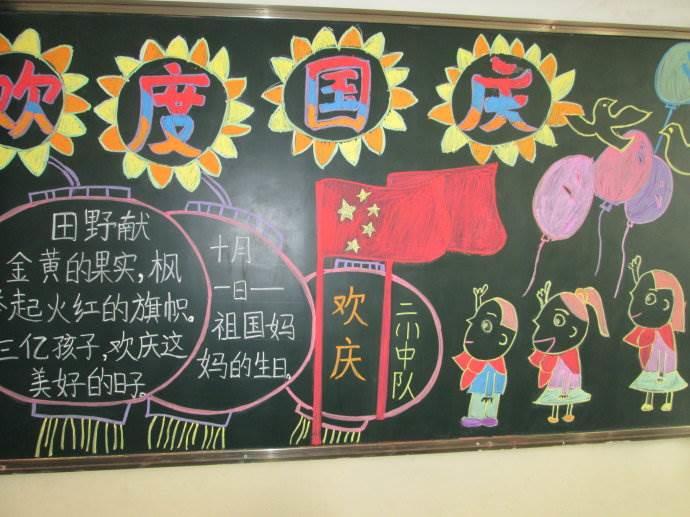 欢度国庆
田野献
金黄的果实，枫
举起火红的旗帜。
三亿孩子，欢庆这
美好的日子。
十月
一日——
祖国妈
妈的生日。
欢庆
二小中队